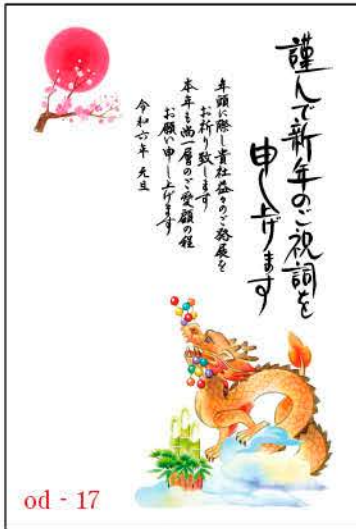 謹んで新年のご祝詞を
申し上げます
年頭に際し貴社益々のご発展を
お祈り致します
本年も尚一層のご愛顧の程
お願い申し上げます
令和六年 元旦
od - 17